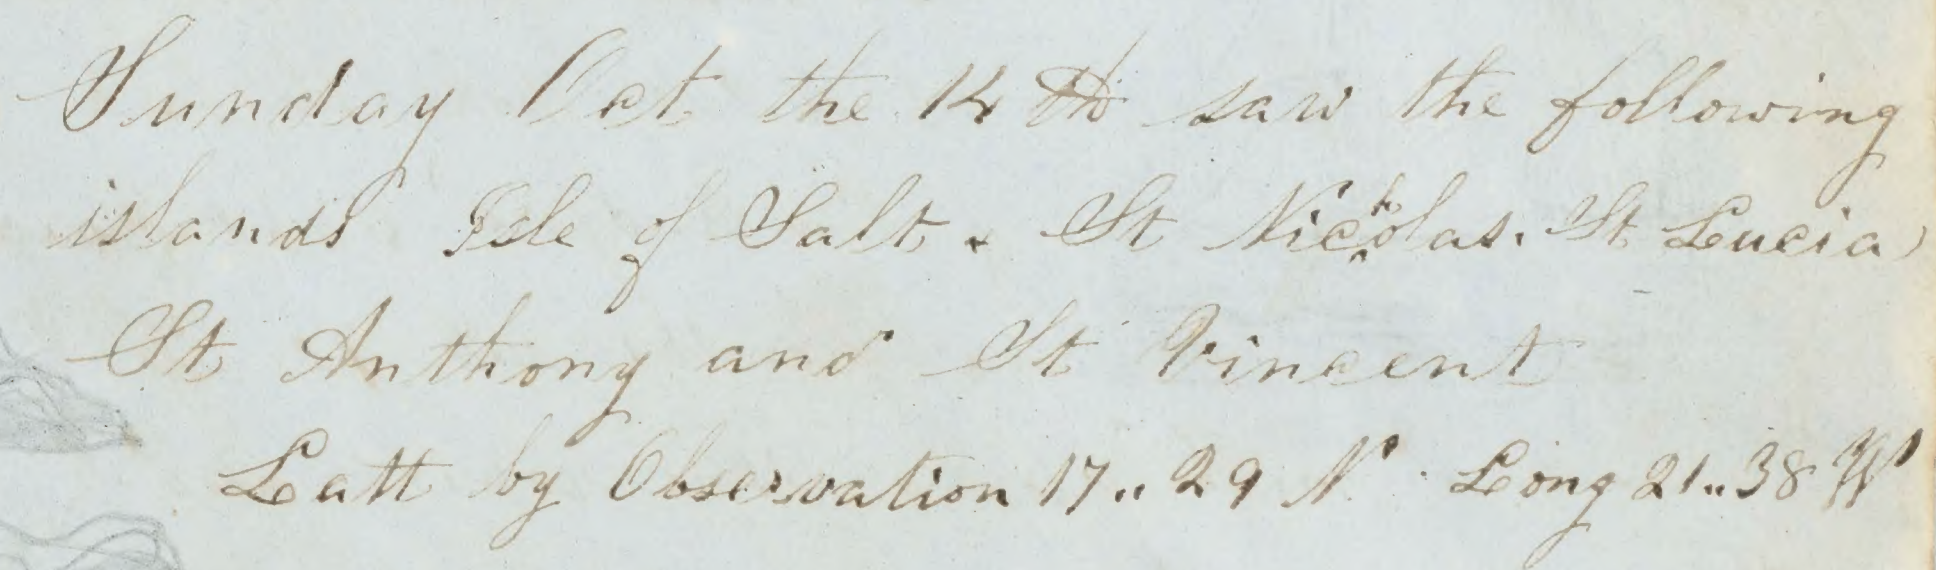 Sunday Oct the 14th saw the following
islands Isle of Salt. St Nicholas. St Lucia
St Anthony and St Vincent
Latt by Observation 17..29 N. Long 21..38 W